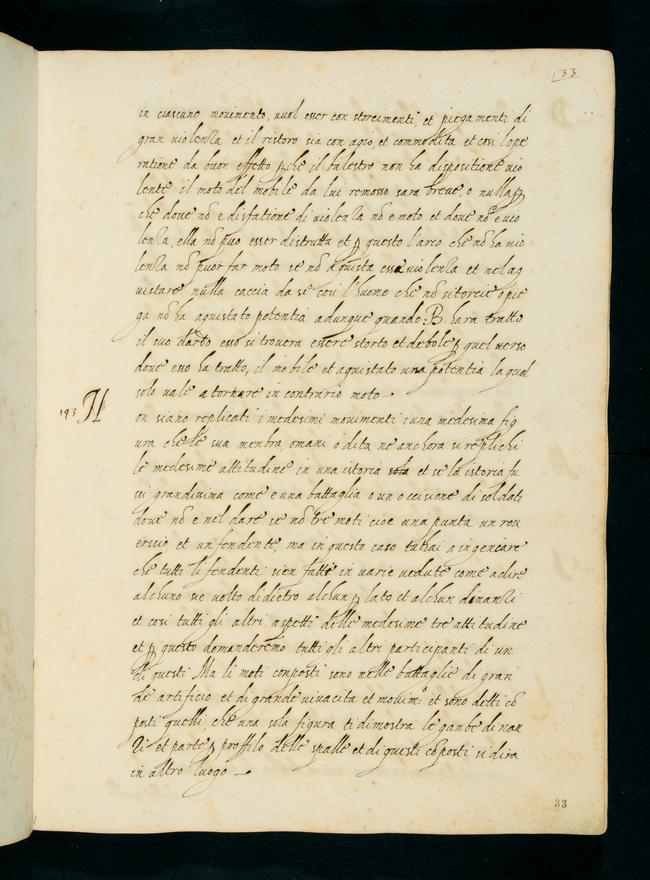 33
in ciascuno movimento, vuol esser con storcimenti, et piegamenti di
gran violenza, et il ristoro sia con agio, et commodita et cosi l'ope
ratione da buon effetto, ꝑche il balestro non ha dispositione vio
lente il moto del mobile da lui remosso sara breve o nulla ꝑ
che dove nō e disfatione di violenza nō e moto et dove nō e vio
lenza, ella nō puo esser distrutta et ꝑ questo l'arco che nō ha vio
lenza nō puor far moto se nō aquista essa violenza et nel aq
uistare nulla caccia da se cosi l'huomo che nō si torcie o pie
ga nō ha aquistato potentia adunque quando .B. hara tratto
il suo dardo esso si trovera essere storto et debole ꝑ quel verso
dove esso ha tratto, il mobile et aquistato una potentia la qual
solo vale a tornare in contrario moto
193 N
on siano replicati i medesimi movimenti i una medesima fig
ura che le sua menbra, o mani o dita ne anchora si replichi
le medesime attitudine in una istoria et se la istoria fu
si grandissima come e una battaglia o un occisione di soldati
dove nō e nel dare se nō tre moti cioe una punta un rov
erscio et un fendente, ma in questo caso tu hai a ingeniare
che tutti li fendenti sien fatte in varie vedute come a dire
alchuno sie volto di dietro alchun ꝑ lato et alchun dinanzi
et cosi tutti gli altri aspetti delle medesime tre attitudine
et ꝑ questo domanderemo tutti gli altri participanti di un
di questi Ma li moti conposti sono nelle battaglie di gran
de artificio et di grande vivacita et movim.º et sono detti cō
posti quelli, che una sola figura ti dimostra le ganbe dinan
zi et parte ꝑ proffilo delle spalle et di questi cōposti si dira
in altro luogo
33